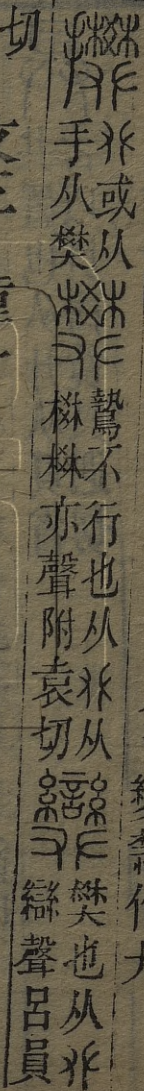 𢸅𠬜或从手从樊樊鷙不行也从𠬜从棥棥亦聲附袁切奱樊也从𠬜䜌聲呂員
切